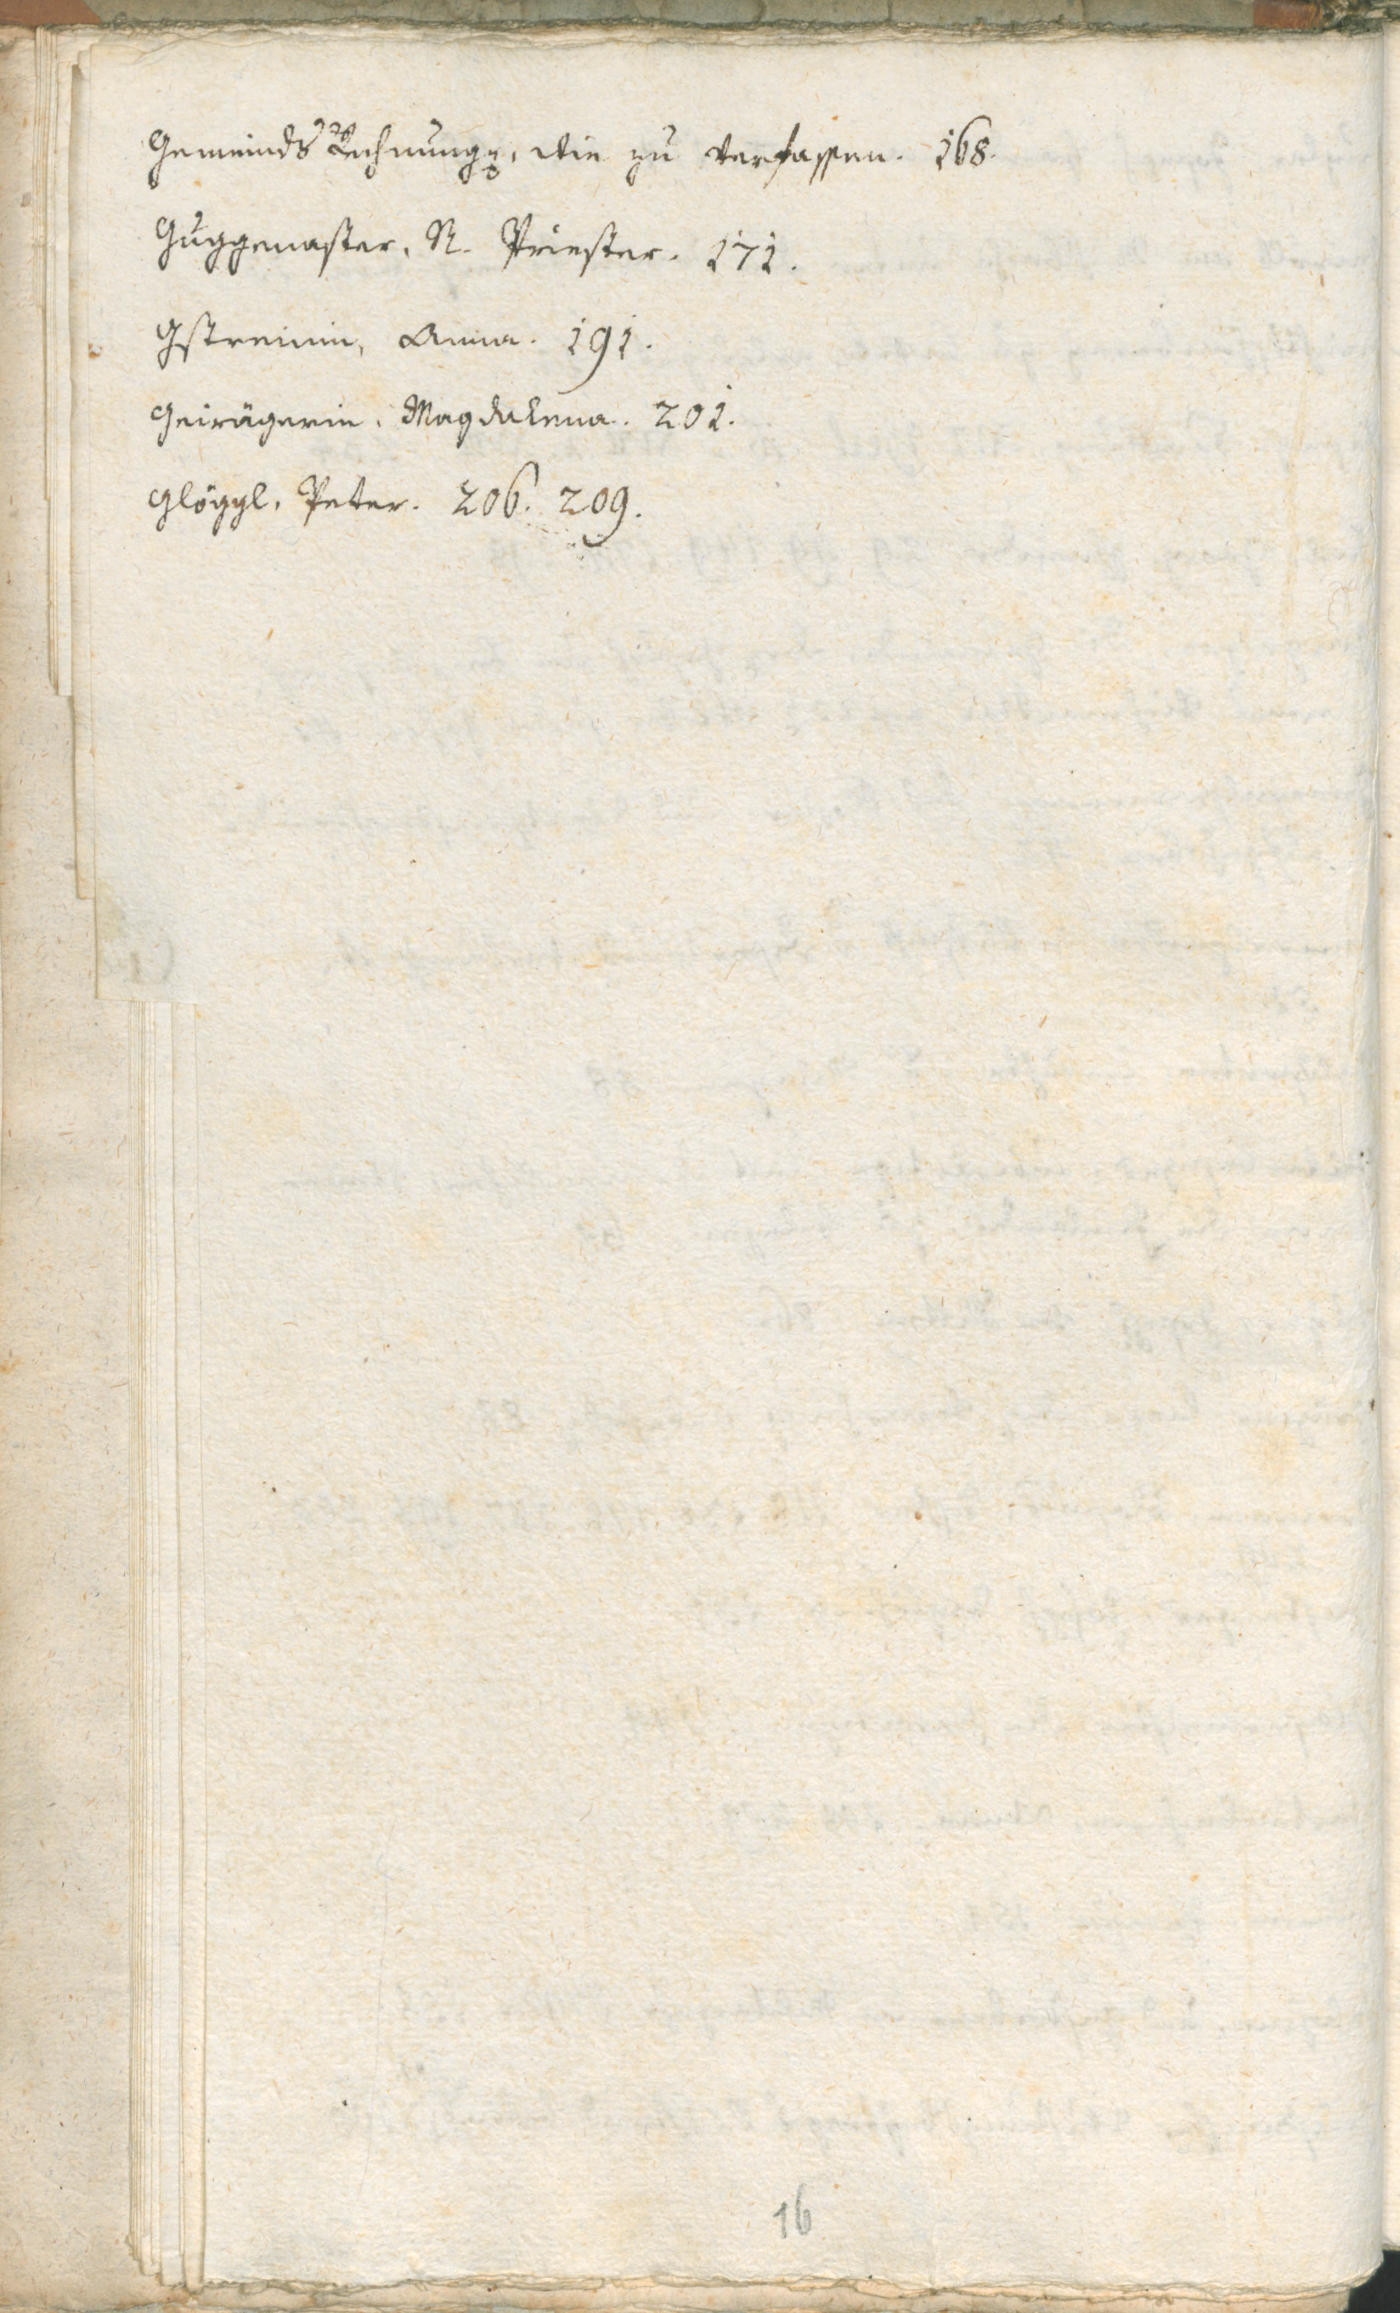 Gemeinds Rechnungen, wie zu verfassen. 168.
Guggenaster, N. Priester. 171.
Gstreinin, Anna. 191.
Geirägerin, Magdalena. 201.
Glöggl, Peter. 206. 209.
16